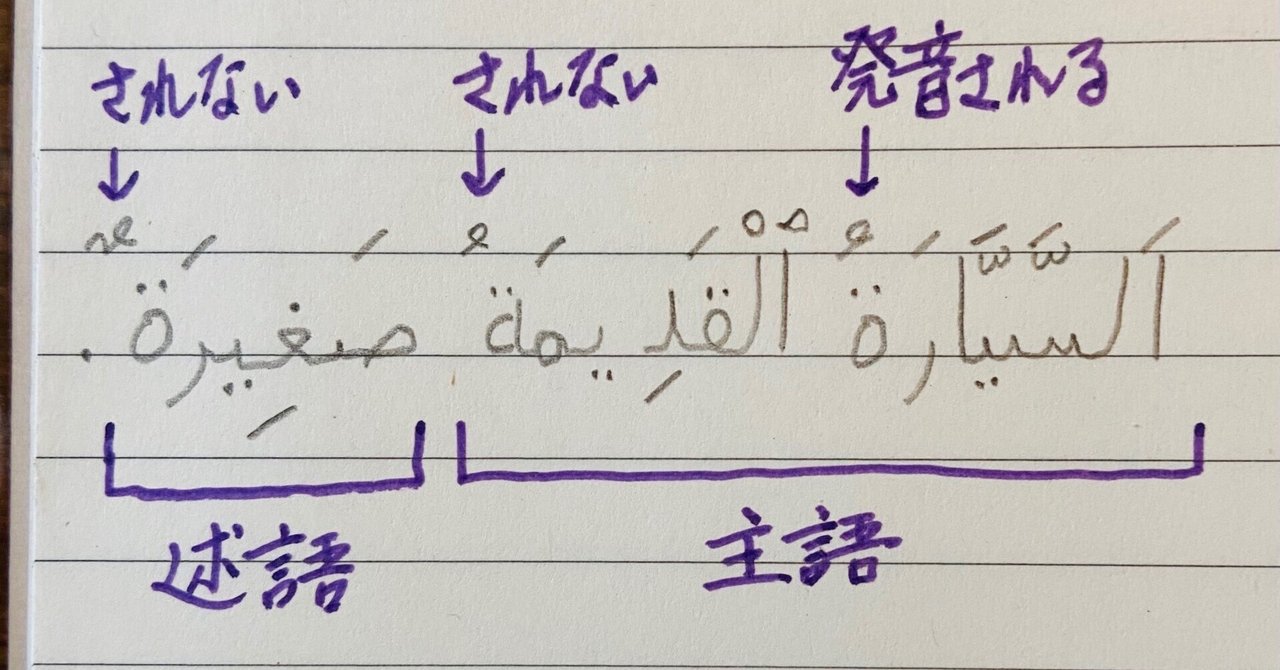 されない されない 発音される
اَلسَّيَّارَةُ ٱلْقَدِيمَةُ صَغِيرَةٌ.
述語 主語